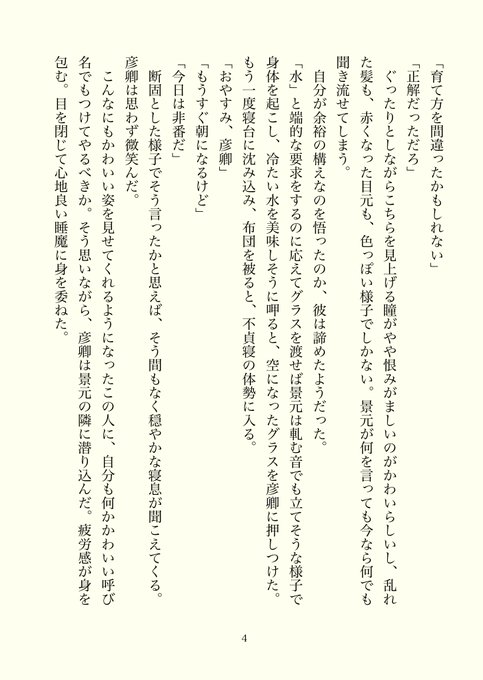 「育て方を間違ったかもしれない」
「正解だっただろ」
　ぐったりとしながらこちらを見上げる瞳がやや恨みがましいのがかわいらしいし、乱れ
た髪も、赤くなった目元も、色っぽい様子でしかない。景元が何を言っても今なら何でも
聞き流せてしまう。
　自分が余裕の構えなのを悟ったのか、彼は諦めたようだった。
「水」と端的な要求をするのに応えてグラスを渡せば景元は軋む音でも立てそうな様子で
身体を起こし、冷たい水を美味しそうに呷ると、空になったグラスを彦卿に押しつけた。
もう一度寝台に沈み込み、布団を被ると、不貞寝の体勢に入る。
「おやすみ、彦卿」
「もうすぐ朝になるけど」
「今日は非番だ」
　断固とした様子でそう言ったかと思えば、そう間もなく穏やかな寝息が聞こえてくる。
彦卿は思わず微笑んだ。
　こんなにもかわいい姿を見せてくれるようになったこの人に、自分も何かかわいい呼び
名でもつけてやるべきか。そう思いながら、彦卿は景元の隣に潜り込んだ。疲労感が身を
包む。目を閉じて心地良い睡魔に身を委ねた。
4